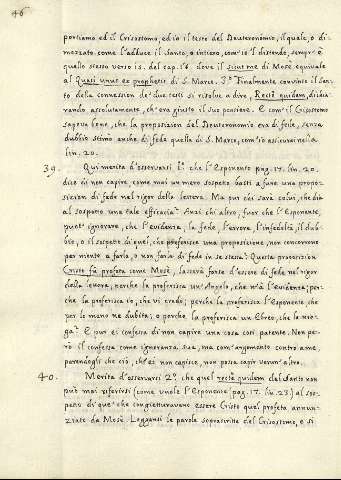 46
portiamo ed il Grisostomo, ed io il testo del Deuteronomio, il quale, o di-
mezzato come l'adduce il santo, o intiero, com'io l'distendo, sempre è
quello stesso verso 15. del cap. 18. dove il sicut me di Mosè equivale
al Quasi unus ex prophetis di S. Marco. 3.° Finalmente convinto il San-
to della connession de' due testi si risolve a dire, Rectè quidem, dichia-
rando assolutamente, ch'era giusto il suo pensiere. E come il Grisostomo
sapeva bene, che la proposizion del Deuteronomio era di fede, senza
dubbio stimò anche di fede quella di S. Marco, com'io assicurai nella
lin. 20.
39. Qui merita d'osservarsi 1.° che l'Esponente pag. 17. lin. 20.
dice di non capire, come mai un mero sospetto basti a fare una propo-
sizion di fede nel rigor della lettera. Ma pur chi sarà colui, che dia
al sospetto una tale efficacia? Anzi chi altro, fuor che l'Esponente,
può ignorare, che l'evidenza, la fede, l'errore, l'infedeltà, il dub-
bio, o il sospetto di quei, che proferisce una proposizione, non concorrono
per niente a farla, o non farla di fede in se stessa? Questa proposizione
Cristo fù profeta come Mosè, lascerà forse d'essere di fede nel rigor
della lettera, perche la proferisca un'Angelo, che n'à l'evidenza; per-
che la proferisca io, che vi credo; perche la proferisca l'Esponente che
per lo meno ne dubita; o perche la proferisca un Ebreo, che la nie-
ga? E pur ei confessa di non capire una cosa così patente. Non pe-
rò il confessa come ignoranza sua, ma com'argomento contro a me,
parendogli che ciò, ch'ei non capisce, non possa capir verun'altro.
40. Merita d'osservarsi 2.° che quel rectè quidem del Santo non
può mai riferirsi (come vuole l'Esponente pag. 17. lin. 23.) al sos-
petto di que' che congietturavano essere Cristo quel profeta annun-
ziato da Mosè. Leggansi le parole soprascritte del Grisostomo, e si